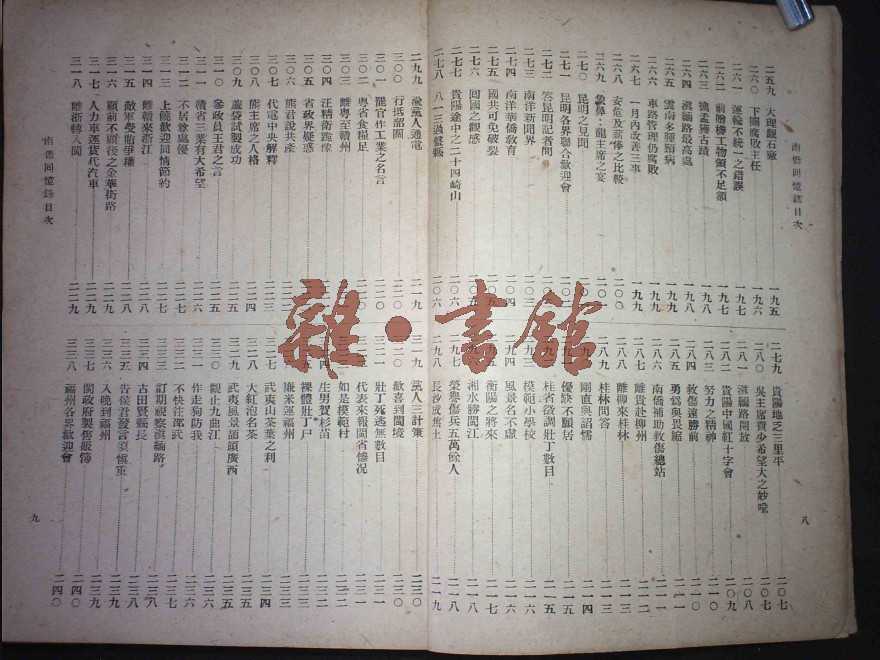 南僑回憶錄目次
二五九 大理觀石廠 一九五
二六〇 下關腐敗主任 一九六
二六一 運輸不統一之錯誤 一九七
二六二 前贈機工物領不足額 一九七
二六三 擒孟獲古蹟 一九八
二六四 滇緬路最高處 一九八
二六五 雲南多腫頸病 一九九
二六六 車路管理仍腐敗 一九九
二六七 一月內改善三事 一九九
二六八 安危及薪俸之比較 二〇〇
二六九 龍主席之宴 二〇一
二七〇 昆明之見聞
二七一 昆明各界聯合歡迎會
二七二 答昆明記者問
二七三 南洋新聞界 二〇三
二七四 南洋華僑教育 二〇四
二七五 國共可免破裂
二七六 回國之觀感
二七七 貴陽途中之二十四崎山 二〇六
二七八 八一三過盤縣 二〇六
二七九 貴陽地乏三里平 二〇七
二八〇 吳主席責少希望大之妙喻 二〇七
二八一 滇緬路開放
二八二 貴陽中國紅十字會 二〇九
二八三 努力之精神 二一〇
二八四 救傷遠勝前 二一〇
二八五 勇爲與畏縮 二一一
二八六 南僑補助救傷總站 二一一
二八七 離貴赴柳州 二一二
二八八 離柳來桂林 二一三
二八九 桂林問答 二一四
剛直與諂懦 二一四
優缺不願居 二一五
桂省徵調壯丁數目 二一五
模範小學校 二一六
二九四 風景名不虛 二一六
衡陽之將來 二一七
湘水勝閩江 二一七
二九七 榮譽傷兵五萬餘人 二一八
二九八 長沙成焦土 二一九
八
二九九 黨人通電 二一九
三〇〇 行抵韶關 二二〇
三〇一 罷官作工業之名言 二二〇
三〇二 粵省食糧足
三〇三 離粵至贛州
三〇四 汪精衛跪像
三〇五 省政界疑惑
三〇六 熊君說共產
三〇七 代電中央解釋 二二三
三〇八 熊主席之人格 二二四
三〇九 蔴袋試製成功 二二五
三一〇 參政員王君之言 二二五
三一一 贛省三業有大希望 二二六
三一二 不居營處優 二二七
三一三 上饒歡迎同情節約 二二七
三一四 離贛來浙江 二二八
三一五 敵軍受賄爭穫 二二八
三一六 顧前不顧後之金華街路 二二九
三一七 人力車運貨代汽車 二二九
三一八 離浙轉入閩 二二九
三一九 黨人三計策 二三〇
三二〇 歡喜到閩境 二三〇
三二一 壯丁死逃無數目 二三一
代表來報閩省慘況 二三一
如是模範村 二三二
生男賀杉苗 二三二
裸體壯丁尸 二三三
廉米運福州 二三三
三二七 武夷山茶葉之利 二三四
三二八 大紅泡名茶 二三五
三二九 武夷風景酷頭廣西 二三五
三三〇 觀止九曲江 二三六
三三一 作走狗防我
三三二 不快往邵武 二三七
三三三 訂期視察滇緬路 二三八
三三四 古田賢縣長 二三八
三三五 告侯君發言須愼重
三三六 入晚到福州 二三九
三三七 閩政府製售賬簿 二四〇
三三八 福州各界歡迎會 二四〇
南僑回憶錄目次
九
雜·書館